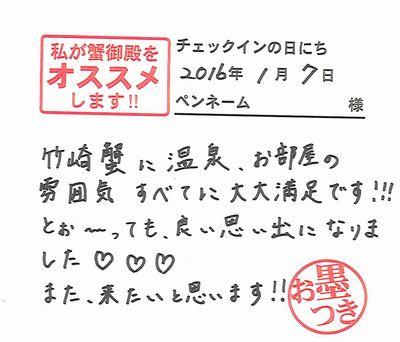 私が蟹御殿を
オススメ
します!!
チェックインの日にち
2016年 1月 7日
ペンネーム 様
竹崎蟹に温泉、お部屋の
雰囲気 すべてに大大満足です!!!
とぉ〜っても、良い思い出になりま
した♡♡♡
また、来たいと思います!!
お墨つき